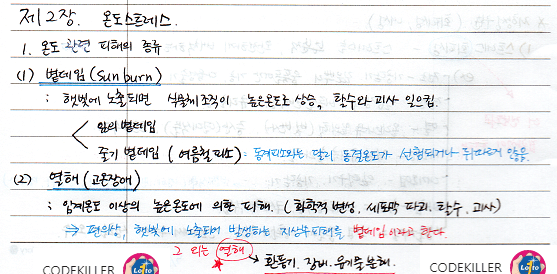 제 2 장. 온도스트레스.
1. 온도 관련 피해의 종류
(1) 볕데임 (Sun burn)
: 햇빛에 노출되면 식물체 조직이 높은온도로 상승, 탈수와 괴사 일으킴.
잎의 볕데임
줄기 볕데임 (여름철 피소) : 동계피소와는 달리 동결온도가 선행되거나 뒤따르지 않음.
(2) 열해 (고온장애)
: 임계온도 이상의 높은온도에 의한 피해. (화학적 변성, 세포막 파괴, 탈수, 괴사)
→ 편의상, 햇빛에 노출되어 발생하는 지상부피해를 볕데임이라고 한다.
그 외는 열해
→ 환풍기, 장비, 유기물 분해.
CODEKILLER Lotto
CODEKILLER Lotto